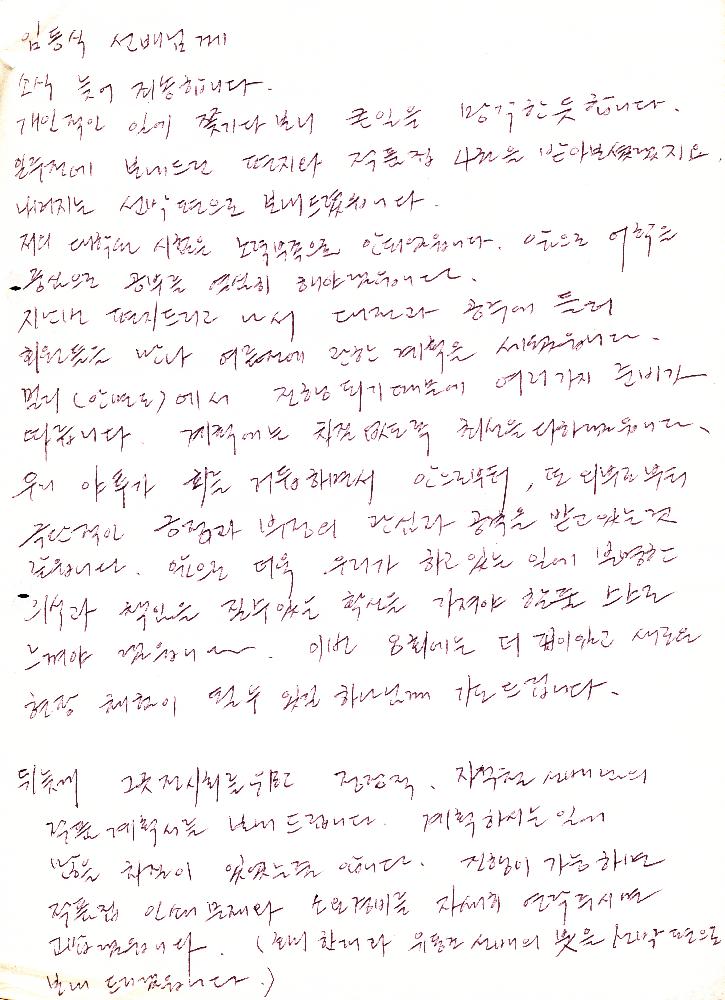 임동식 선배님께
소식 늦어 죄송합니다.
개인적인 일에 쫓기다 보니 큰일을 망각한듯 합니다.
일주전에 보내드린 편지와 작품집 4권은 받아보셨겠지요.
나머지는 선박편으로 보내드렸읍니다.
저의 대학원 시험은 노력부족으로 안되었읍니다. 앞으로 어학을
중심으로 공부를 열심히 해야겠읍니다.
지난번 편지드리고 나서 대전과 공주에 들려
회원들을 만나 여름전에 관한 계획을 세웠읍니다.
멀리 (안면도)에서 진행되기 때문에 여러가지 준비가
따릅니다. 계획에는 차질 없도록 최선을 다하겠읍니다.
우리 야투가 회를 거듭하면서 안으로부터, 또 외부로부터
극단적인 긍정과 부정의 관심과 공격을 받고 있는것
같읍니다. 앞으로 더욱 우리가 하고 있는 일에 분명한
의식과 책임을 질수있는 확신을 가져야 함을 스스로
느껴야 겠읍니다. 이번 8회에는 더 깊이있고 새로운
현장 체험이 될 수 있길 하나님께 기도드립니다.
뒤늦게 그곳 전시회를 위한 정장직, 지석철 선배님의
작품계획서를 보내드립니다. 계획하시는 일에
많은 차질이 있었는줄 압니다. 진행이 가능하면
작품집 인쇄문제와 소요경비를 자세히 연락주시면
고맙겠읍니다. ( 선배의 것은 선박편으로
보내드리겠읍니다.)